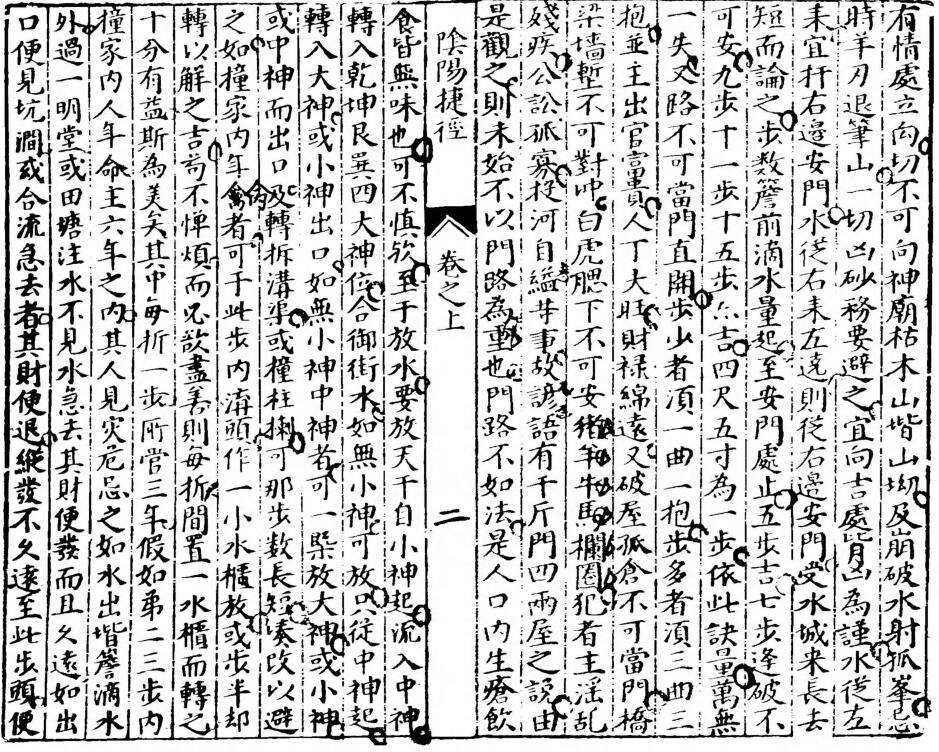 有情處立向切不可向神廟枯木山堦山坳及崩破水射孤峯忌
時羊刃退筆山一切凶砂務要避之宜向吉處背凶為謹水從左
耒宜扦右邊安門水從右耒左遶則從右邊安門受水城来長去
短而論之步数簷前滴水量起至安門處止五步吉七步逢破不
可安九步十一步十五步亦吉四尺五寸為一步依此訣量萬無
一失又路不可當門直開步少者湏一曲一抱步多者湏三曲三
抱並主出官富貴人丁大旺財禄綿遠又破屋孤倉不可當門橋
梁墻塹不可對冲白虎腮下不可安猪牢牛馬欄圈犯者主滛乱
殘疾公訟孤寡投河自縊等事故諺語有千斤門四兩屋之說由
是觀之則未始不以門路為重也門路不如法是人口内生瘡飲
陰陽捷徑 卷之上 二
食皆無味也可不慎欤至于放水要放天干自小神起流入中神
轉入乾坤艮巽四大神位合御街水如無小神可放只從中神起
轉入大神或小神出口如無小神中神者可一槩放大神或小神
或中神而出口及轉拆溝渠或撞柱揦可那步數長短湊改以避
之如撞家内年禽者可于此步内溝頭作一小水櫃放或步半却
轉以解之吉苟不憚煩而必欲盡善則每折間置一水櫃而轉之
十分有益斯為美矣其中每折一步所管三年假如第二三步内
撞家内人年命主六年之内其人見灾危忌之如水出堦簷滴水
外過一明堂或田塘注水不見水急去其財便發而且久遠如出
口便見坑澗或合流急去者其財便退縱發不久遠至此步頭便